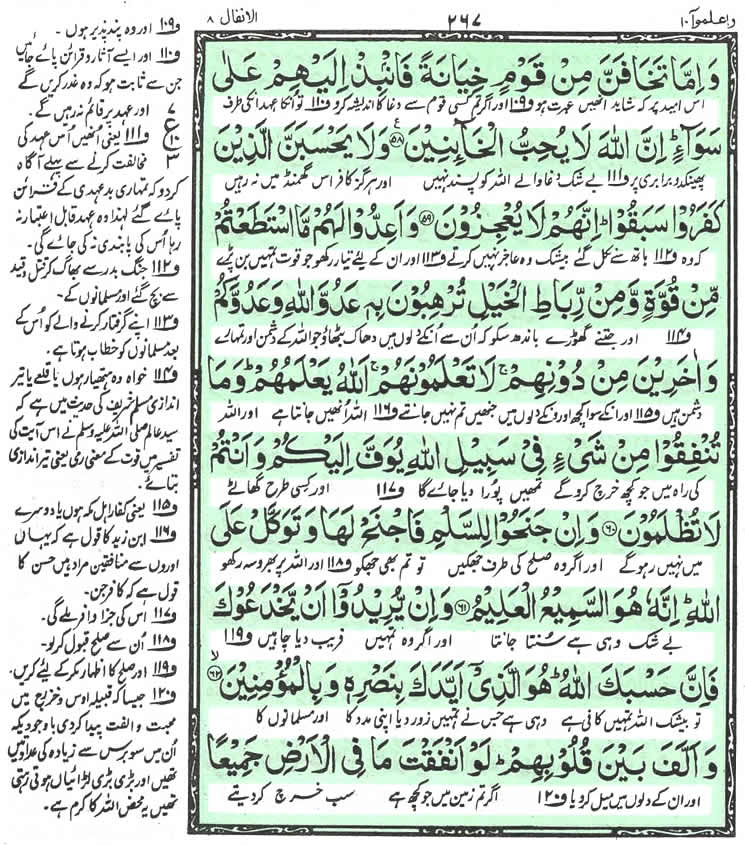 واعلموآ ١٠
٢٦٧
الانفال ٨
وَاِمَّا تَخَافَنَّ مِنْ قَوْمٍ خِيَانَةً فَانْۢبِذْ اِلَيْهِمْ عَلٰى
اس امید پر کہ شاید انھیں عبرت ہو و۱۰۹ اور اگر تم کسی قوم سے دغا کا اندیشہ کرو و۱۱۰ تو اُن کا عہد اُن کی طرف
سَوَآءٍ ؕ اِنَّ اللّٰهَ لَا يُحِبُّ الْخَآئِنِيْنَ ﴿۵۸﴾ وَلَا يَحْسَبَنَّ الَّذِيْنَ
پھینک دو برابری پر و۱۱۱ بے شک دغا والے اللہ کو پسند نہیں اور ہرگز کافر اس گھمنڈ میں نہ رہیں
كَفَرُوْا سَبَقُوْا ؕ اِنَّهُمْ لَا يُعْجِزُوْنَ ﴿۵۹﴾ وَاَعِدُّوْا لَهُمْ مَّا اسْتَطَعْتُمْ
کہ وہ و۱۱۲ ہاتھ سے نکل گئے بیشک وہ عاجز نہیں کرتے و۱۱۳ اور ان کے لئے تیار رکھو جو قوت تمہیں بن پڑے
مِّنْ قُوَّةٍ وَّمِنْ رِّبَاطِ الْخَيْلِ تُرْهِبُوْنَ بِهٖ عَدُوَّ اللّٰهِ وَعَدُوَّكُمْ
و۱۱۴ اور جتنے گھوڑے باندھ سکو کہ اُن سے اُنکے دلوں میں دھاک بٹھاؤ جو اللہ کے دشمن اور تمہارے
وَاٰخَرِيْنَ مِنْ دُوْنِهِمْ ۚ لَا تَعْلَمُوْنَهُمْ ۚ اَللّٰهُ يَعْلَمُهُمْ ؕ وَمَا
دشمن ہیں و۱۱۵ اور انکے سوا کچھ اوروں کے دلوں میں جنھیں تم نہیں جانتے و۱۱۶ اللہ اُنھیں جانتا ہے اور اللہ
تُنْفِقُوْا مِنْ شَيْءٍ فِيْ سَبِيْلِ اللّٰهِ يُوَفَّ اِلَيْكُمْ وَاَنْتُمْ
کی راہ میں جو کچھ خرچ کرو گے تمھیں پورا دیا جائے گا و۱۱۷ اور کسی طرح گھاٹے
لَا تُظْلَمُوْنَ ﴿۶۰﴾ وَاِنْ جَنَحُوْا لِلسَّلْمِ فَاجْنَحْ لَهَا وَتَوَكَّلْ عَلَى
میں نہیں رہو گے اور اگر وہ صلح کی طرف جھکیں تو تم بھی جھکو و۱۱۸ اور اللہ پر بھروسہ رکھو
اللّٰهِ ؕ اِنَّهٗ هُوَ السَّمِيْعُ الْعَلِيْمُ ﴿۶۱﴾ وَاِنْ يُّرِيْدُوْٓا اَنْ يَّخْدَعُوْكَ
بے شک وہی ہے سُنتا جانتا اور اگر وہ تمہیں فریب دیا چاہیں و۱۱۹
فَاِنَّ حَسْبَكَ اللّٰهُ ؕ هُوَ الَّذِيْٓ اَيَّدَكَ بِنَصْرِهٖ وَبِالْمُؤْمِنِيْنَ ﴿۶۲﴾ ۙ
تو بیشک اللہ تمہیں کافی ہے وہی ہے جس نے تمہیں زور دیا اپنی مدد کا اور مسلمانوں کا
وَاَلَّفَ بَيْنَ قُلُوْبِهِمْ ؕ لَوْ اَنْفَقْتَ مَا فِي الْاَرْضِ جَمِيْعًا
اور ان کے دلوں میں میل کر دیا و۱۲۰ اگر تم زمین میں جو کچھ ہے سب خرچ کر دیتے
و۱۰۹ اور وہ پند پذیر ہوں۔
و۱۱۰ اور ایسے آثار و قرائن پائے جائیں
جن سے ثابت ہو کہ وہ غدر کریں گے
اور عہد پر قائم نہ رہیں گے۔
و۱۱۱ یعنی اُنھیں اُس عہد کی
مخالفت کرنے سے پہلے آگاہ
کر دو کہ تمہاری بد عہدی کے قرائن
پائے گئے لہٰذا وہ عہد قابل اعتبار نہ
رہا اُس کی پابندی نہ کی جائے گی۔
و۱۱۲ جنگ بدر سے بھاگ کر قتل و قید
سے بچ گئے اور مسلمانوں کے۔
و۱۱۳ اپنے گرفتار کرنے والے کو اُس کے
بعد مسلمانوں کو خطاب ہوتا ہے۔
و۱۱۴ خواہ وہ ہتھیار ہوں یا قلعے یا تیر
اندازی مسلم شریف کی حدیث میں ہے کہ
سید عالم صلی اللہ علیہ وسلم نے اس آیت کی
تفسیر میں قوت کے معنی رمی یعنی تیر اندازی
بتائے۔
و۱۱۵ یعنی کفار اہل مکہ ہوں یا دوسرے
و۱۱۶ ابن زید کا قول ہے کہ یہاں
اوروں سے منافقین مراد ہیں حسن کا
قول ہے کہ کافر جن۔
و۱۱۷ اس کی جزا وافر ملے گی۔
و۱۱۸ اُن سے صلح قبول کر لو۔
و۱۱۹ اور صلح کا اظہار مکر کے لئے کریں۔
و۱۲۰ جیسا کہ قبیلہ اوس و خزرج میں
محبت و الفت پیدا کر دی باوجودیکہ
اُن میں سو برس سے زیادہ کی عداوتیں
تھیں اور بڑی بڑی لڑائیاں ہوتی رہتی
تھیں یہ محض اللہ کا کرم ہے۔